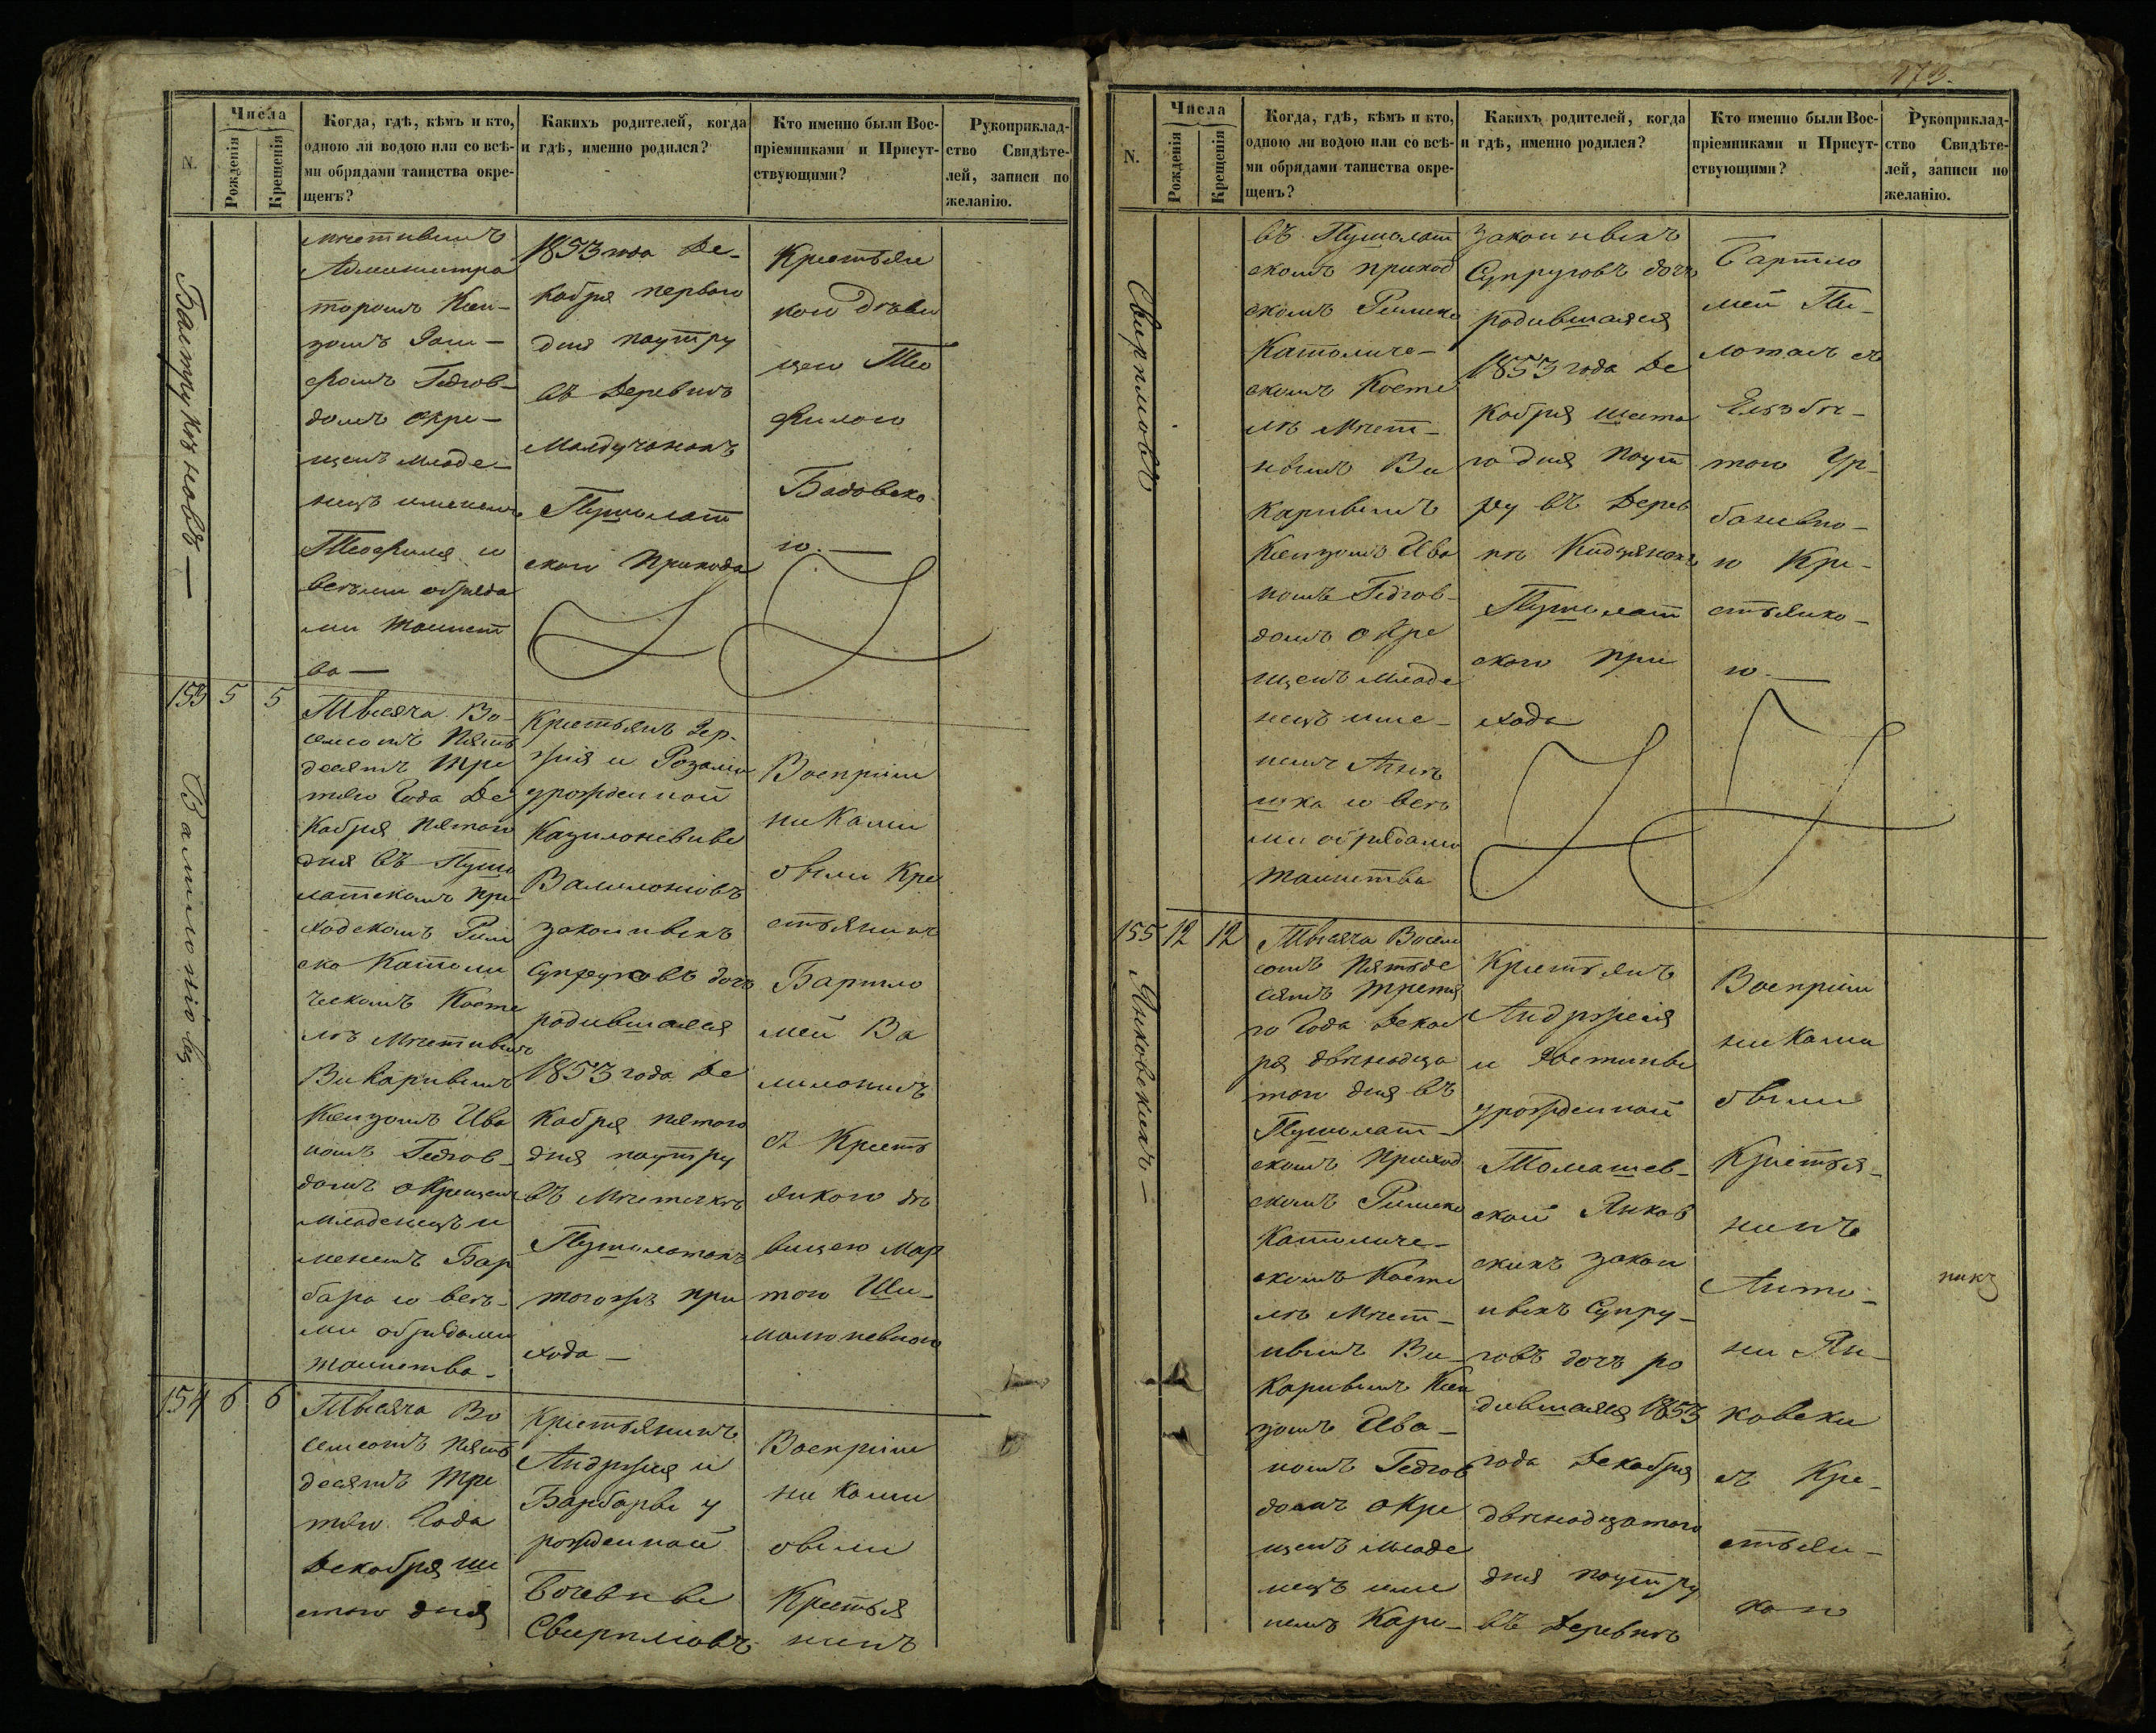 N.
Числа
Рожденія
Крещенія
Когда, гдѣ, кѣмъ и кто,
одною ли водою или со всѣ-
ми обрядами таинства окре-
щенъ?
Какихъ родителей, когда
и гдѣ, именно родился?
Кто именно были Вос-
пріемниками и Присут-
ствующими?
Рукоприклад-
ство Свидѣте-
лей, записи по
желанію.
мѣстнымъ
Администра
торомъ Ксен-
дзомъ
домъ окре-
щенъ младе-
нецъ именемъ
Теофиля со
всѣми обряда
ми таинст
ва —
1853 года Де-
кабря перваго
дня поутру
въ Деревнѣ
Пушолат
скаго Прихода
Крестьян
кою Дѣви
цею Тео
филою
ю. —
153 5 5
Тысяча Во-
семсотъ Пять
десятъ тре
тяго Года Де
кабря пятаго
дня въ Пушо
латскомъ При
ходскомъ Рим
ско Католи
ческомъ Косте
лѣ мѣстнымъ
Викарнымъ
Ксендзомъ Ива
номъ Гедгов-
домъ окрещенъ
младенецъ и
менемъ Бар
бара со всѣ-
ми обрядами
таинства.
Крестьянъ
и Розаліи
урожденной
законныхъ
Супруговъ дочь
родившаяся
1853 года Де
кабря пятаго
дня поутру
въ Мѣстечкѣ
Пушолатахъ
тогожъ при
хода —
Воспріем
никами
были Кре
стьянинъ
Бартло
мей Ва
лилонисъ
съ Кресть
янкою дѣ
вицею Мар
тою Ши-
154 6 6
Тысяча Во
семсотъ пять
десятъ тре
тяго Года
Декабря ше
стого дня
Крестьянинъ
Андржея и
Барбары у
рожденной
Воспріем
никами
были
Крестья
нинъ
173.
N.
Числа
Рожденія
Крещенія
Когда, гдѣ, кѣмъ и кто,
одною ли водою или со всѣ-
ми обрядами таинства окре-
щенъ?
Какихъ родителей, когда
и гдѣ, именно родился?
Кто именно были Вос-
пріемниками и Присут-
ствующими?
Рукоприклад-
ство Свидѣте-
лей, записи по
желанію.
въ Пушолат
скомъ приход
скомъ Римско
Католиче-
скомъ Косте
лѣ мѣст-
нымъ Ви
карнымъ
Ксендзомъ Ива
номъ Гедгов-
домъ окре
щенъ младе
нецъ име-
немъ Агнѣ
шка со всѣ
ми обрядами
таинства
законныхъ
Супруговъ дочь
родившаяся
1853 года Де
кабря шеста
го дня поут
ру въ Дерев
нѣ
Пушолат
скаго при
хода
Бартло
мей
съ
Ельзбѣ-
тою Ур-
бановно-
ю Кре-
стьянко-
ю. —
155 12 12
Тысяча Восем
сотъ пятьде
сятъ третя
го Года Декаб
ря двѣнадца
таго дня въ
Пушолат-
скомъ Приход
скомъ Римско
Католиче-
скомъ Косте
лѣ мѣст-
нымъ Ви-
карнымъ Ксен
дзомъ Ива-
номъ Гедгов
домъ окре
щенъ младе
нецъ име
немъ Каро-
Крестьянъ
Андржея
и Юстины
урожденной
Томашев-
ской Янков
скихъ закон
ныхъ Супру-
говъ дочь ро
дившаяся 1853
года Декабря
двѣнадцатаго
дня поутру
въ Деревнѣ
Воспріем
никами
были
Крестья-
нинъ
Анто-
ни Ян-
ковски
съ Кре-
стьян-
кою
Янковскихъ —